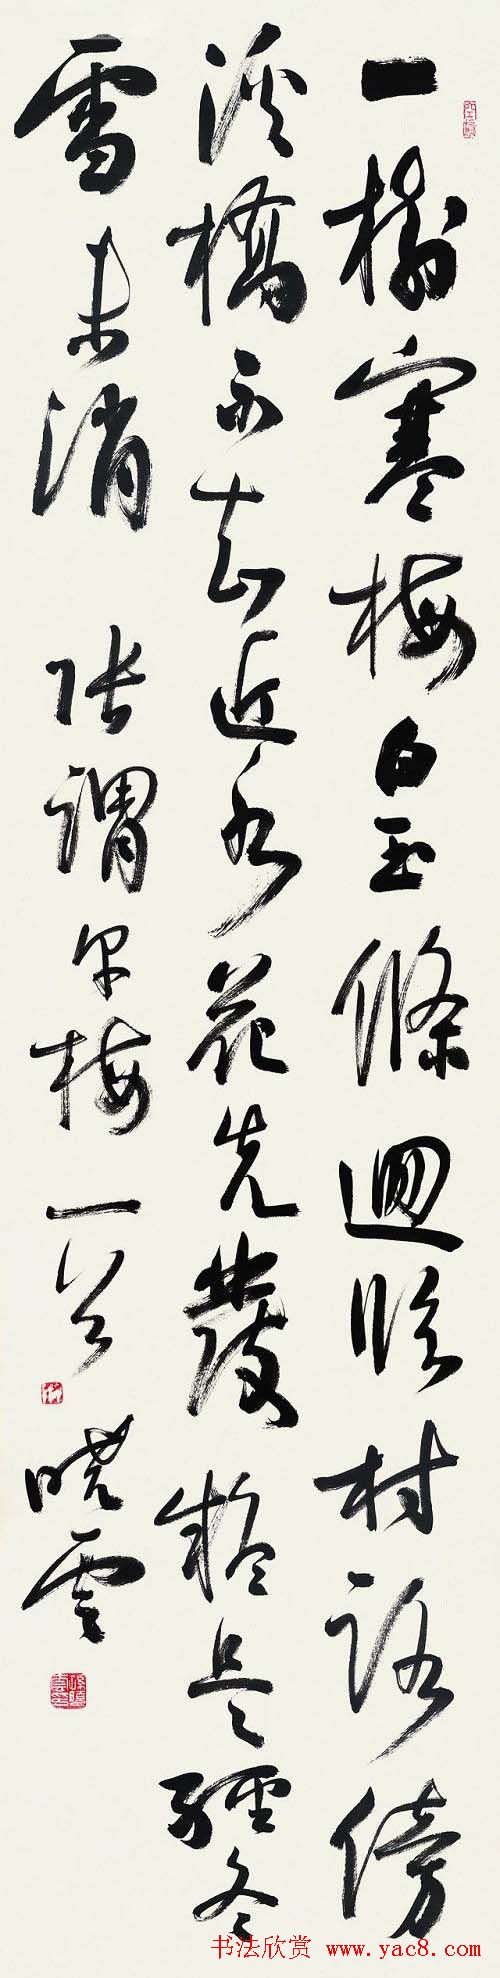 一樹寒梅白玉條迴臨村路傍
溪橋不知近水花先發疑是經冬
雪未消 張謂早梅一首 曉雲
书法欣赏 www.yac8.com